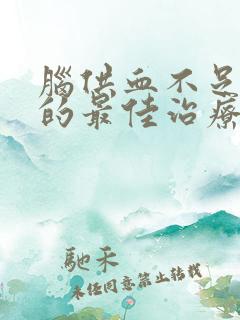 腦供血不足
的最佳治療
馳禾
未任同意禁止转载